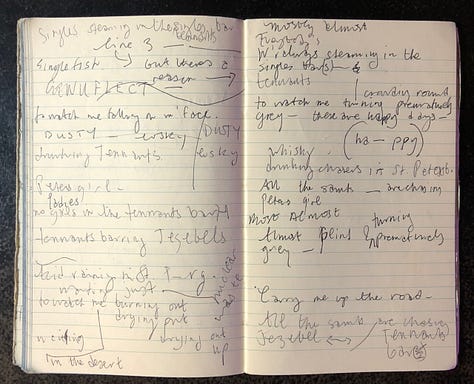 Singles steaming in the singles bar
tennants
line 3
Single fish but there's a
reason
GENUFLECT
to watch me falling on m' face.
DUSTY DUSTY
drinking Tennants.
Peters girl.
ladies
no girls in the tennants bars
tennants barring Jezebels
acid raining
waiting just
to watch me burning out
drying out
waiting drying out
up
in the desert
nuclear
waste
mostly almost
Frayboys,
W always steaming in the
singles bar(s)
tennants
crowding round
to watch me turning prematurely
grey — these are happy days —
(ha — ppy)
whisky
drinking chasers in St Petersb.
All the saints — are choosing
Peters girl
Most Almost
turning
Almost blind & prematurely
grey —
'Carry me up the road —
All the saints are chosing
Jezebel Tennants
bars